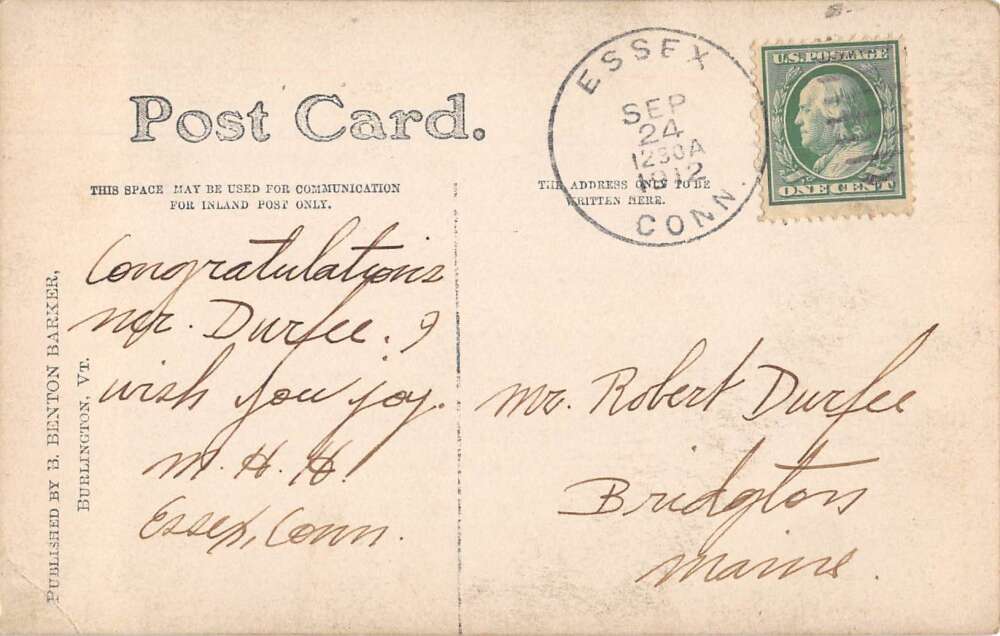 Post Card.
THIS SPACE MAY BE USED FOR COMMUNICATION
FOR INLAND POST ONLY.
THE ADDRESS ONLY TO BE
WRITTEN HERE.
ESSEX
SEP
24
1230A
1912
CONN.
U.S. POSTAGE
ONE CENT
Congratulations
Mr. Durfee. I
wish you joy.
M. H. H.
Essex, Conn.
Mr. Robert Durfee
Bridgton
Maine.
PUBLISHED BY B. BENTON BARKER,
BURLINGTON, VT.